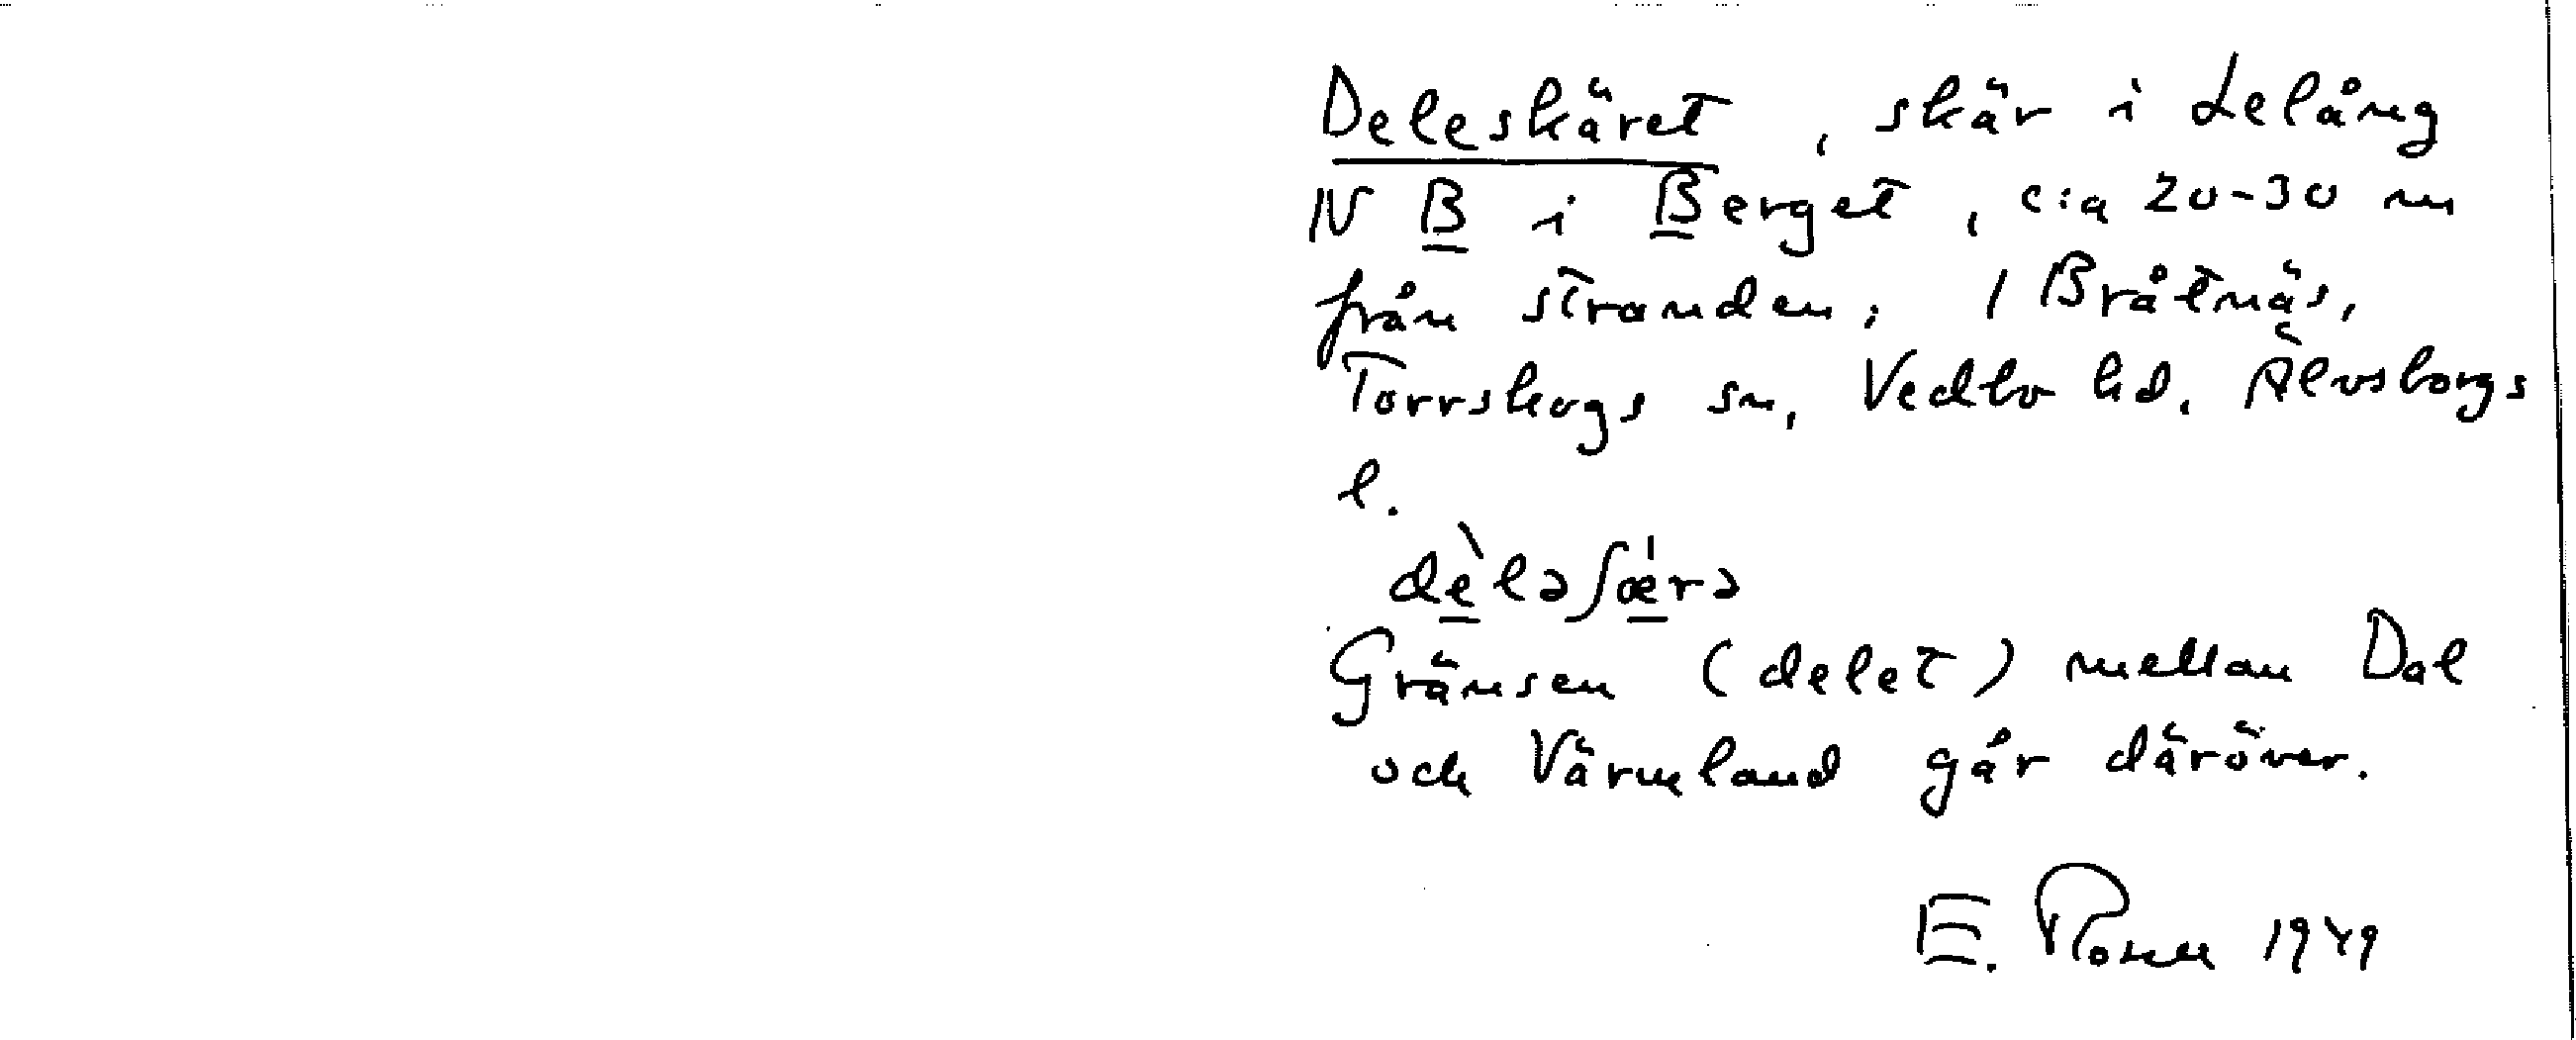 Deleskäret, skär i Lelång
NV B i Berget, c:a 20-30 m
från stranden; 1 Bråtnäs,
Torrskogs sn, Vedbo hd. Älvsborgs
l.
dèləʃæ̍rə
Gränsen (delet) mellan Dal
och Värmland går däröver.
E. 1949